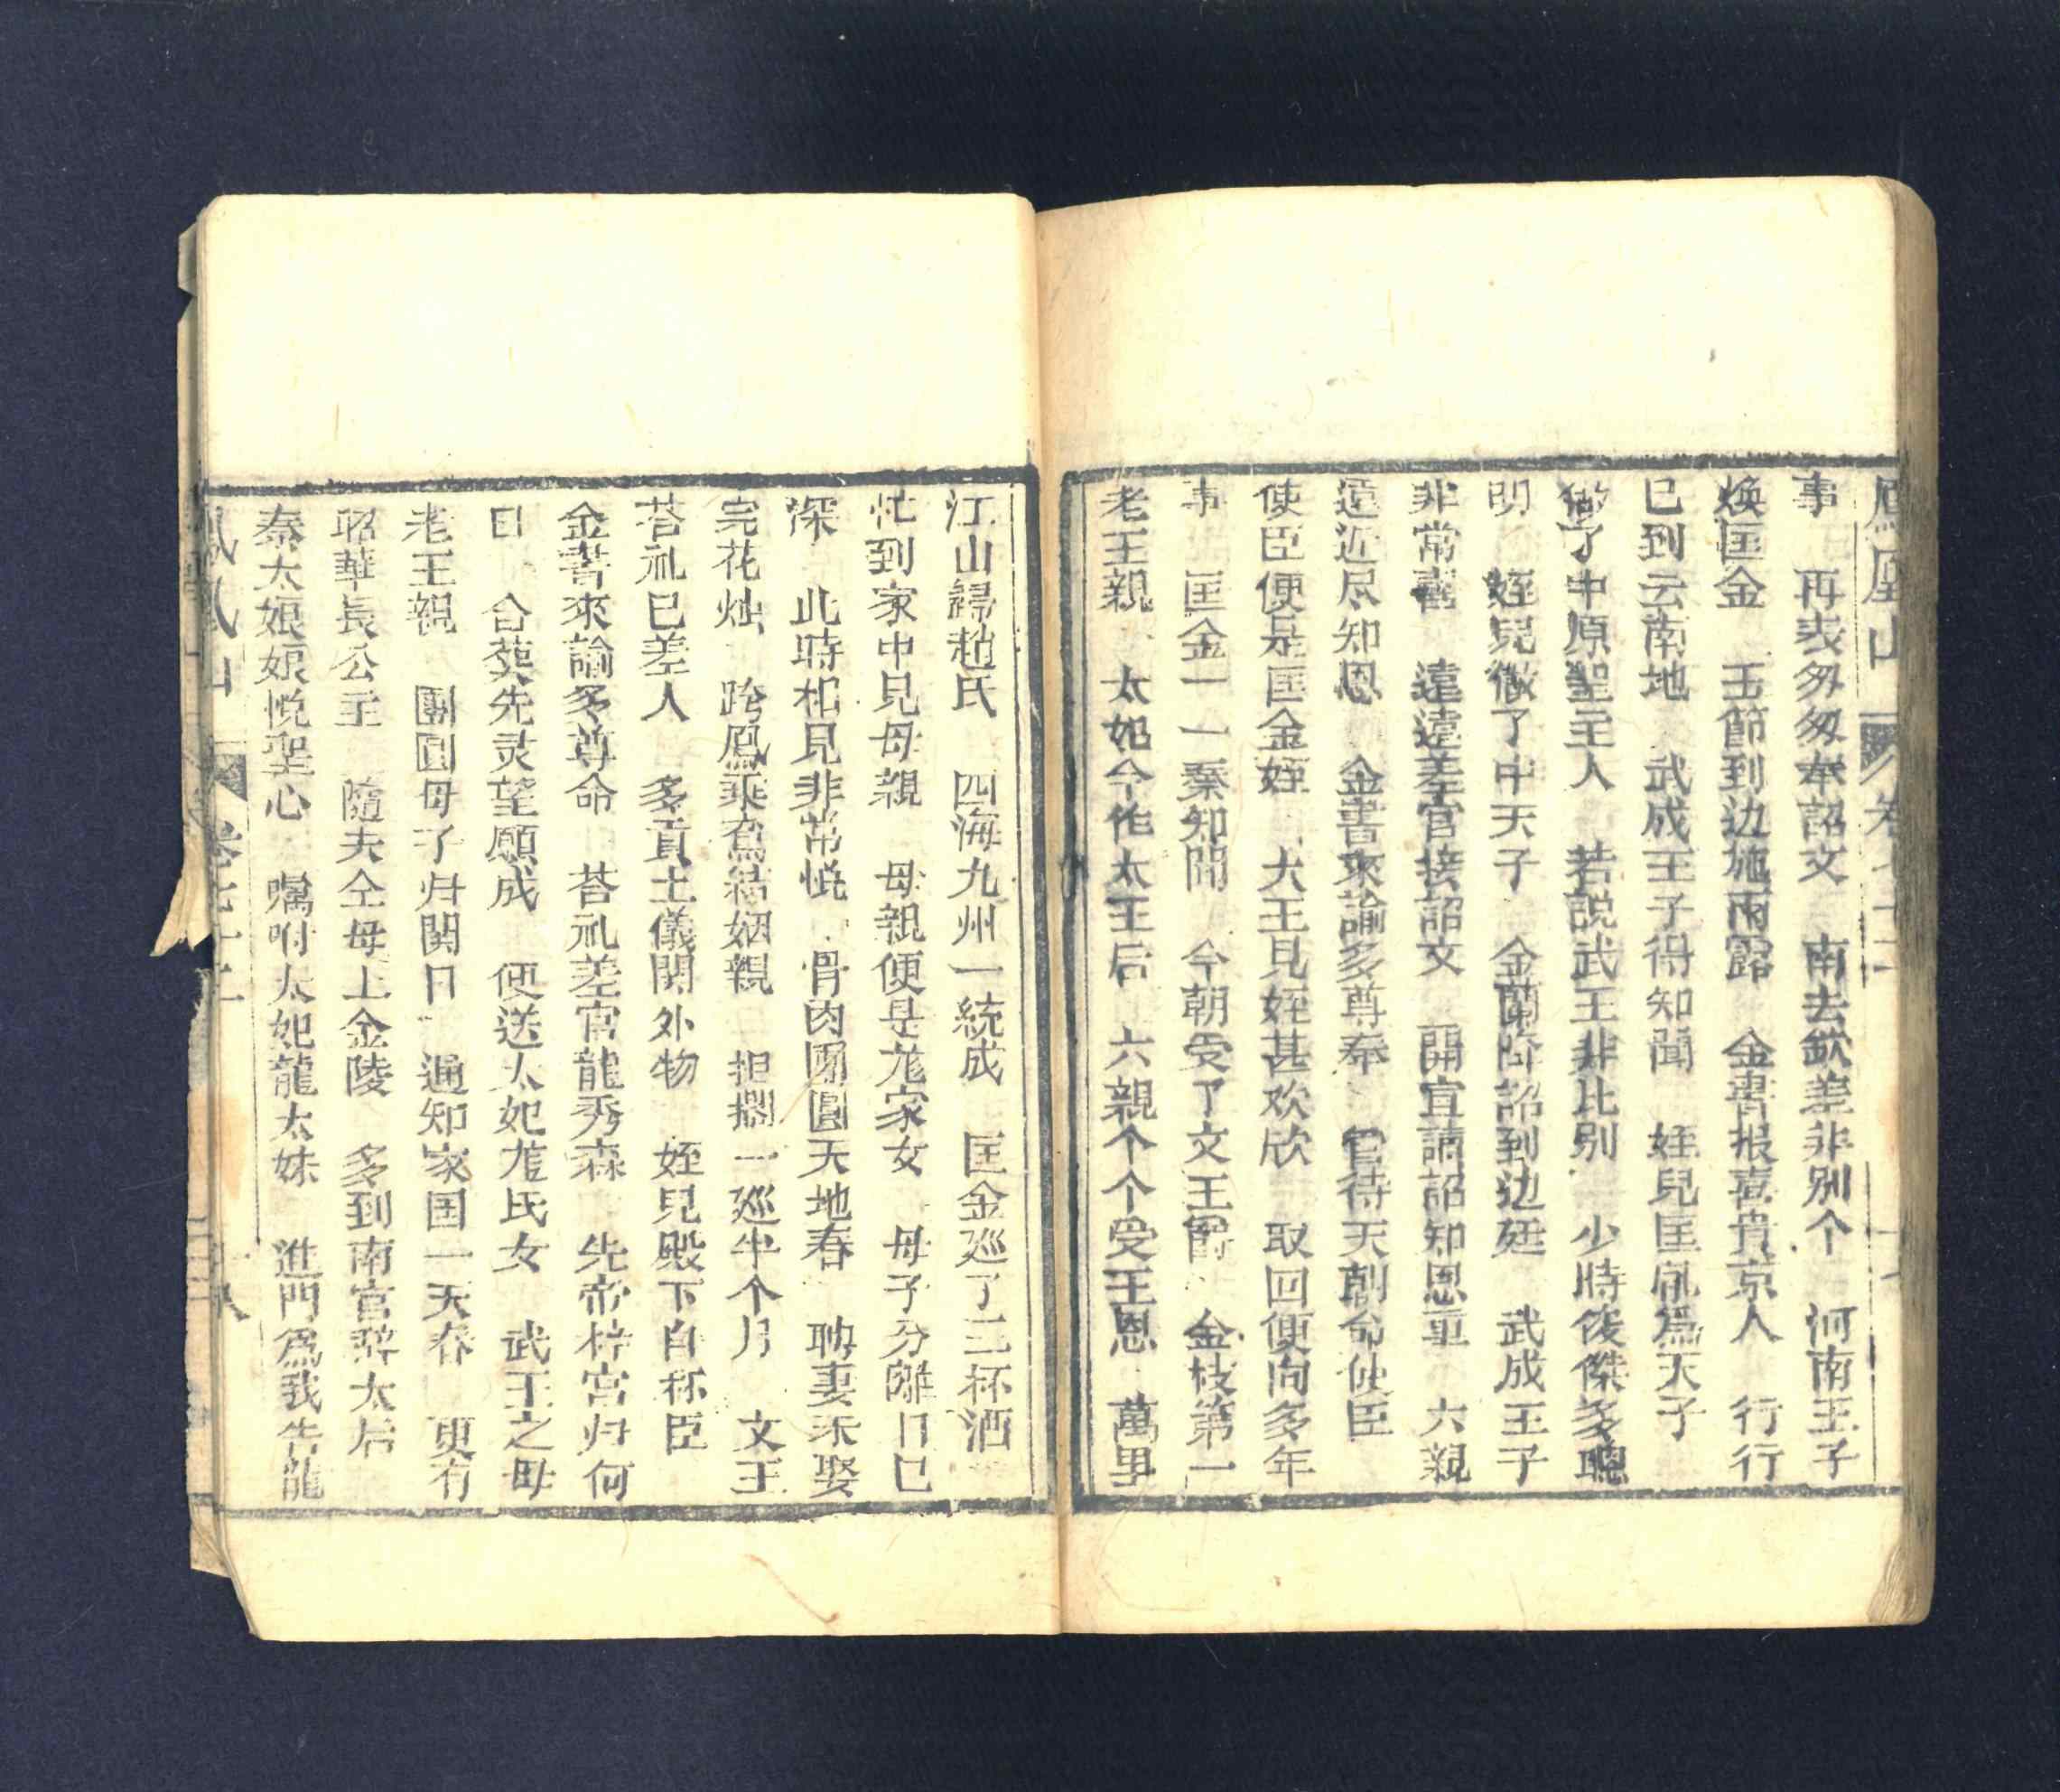 鳳凰山 卷七十二
事 再表匆匆奉詔文 南去欽差非别个 河南王子
煥匡金 玉節到边施雨露 金書报喜貴京人 行行
已到云南地 武成王子得知聞 姪兒匡胤爲天子
做了中原聖主人 若説武王非比别 少時俊傑多聰
明 姪兒做了中天子 金蘭降詔到边廷 武成王子
非常喜 遠遠差官接詔文 開宣讀詔知恩重 六親
遠近尽知恩 金書來諭多尊奉 官待天朝命使臣
使臣便是匡金姪 大王見姪甚欢欣 取回便向多年
事 匡金一一禀知聞 今朝受了文王爵 金枝第一
老王親 太妃今作太王后 六親个个受王恩 萬里
江山歸趙氏 四海九州一統成 匡金巡了三杯酒
忙到家中見母親 母親便是尨家女 母子分離日已
深 此時相見非常悦 骨肉團圓天地春 聘妻未娶
完花烛 跨鳳乘鸞結姻親 担擱一巡半个月 文王
荅礼已差人 多貢土儀関外物 姪兒殿下自称臣
金書來諭多尊命 荅礼差官龍秀森 先帝梓宮归何
日 合葬先灵望願成 便送太妃尨氏女 武王之母
老王親 團圓母子归関日 通知家国一天春 更有
昭華長公主 隨夫仝母上金陵 多到南宮辞太后
秦太娘娘悦聖心 囑咐太妃龍太妹 進門爲我告龍
鳳凰山 卷七十二 十八